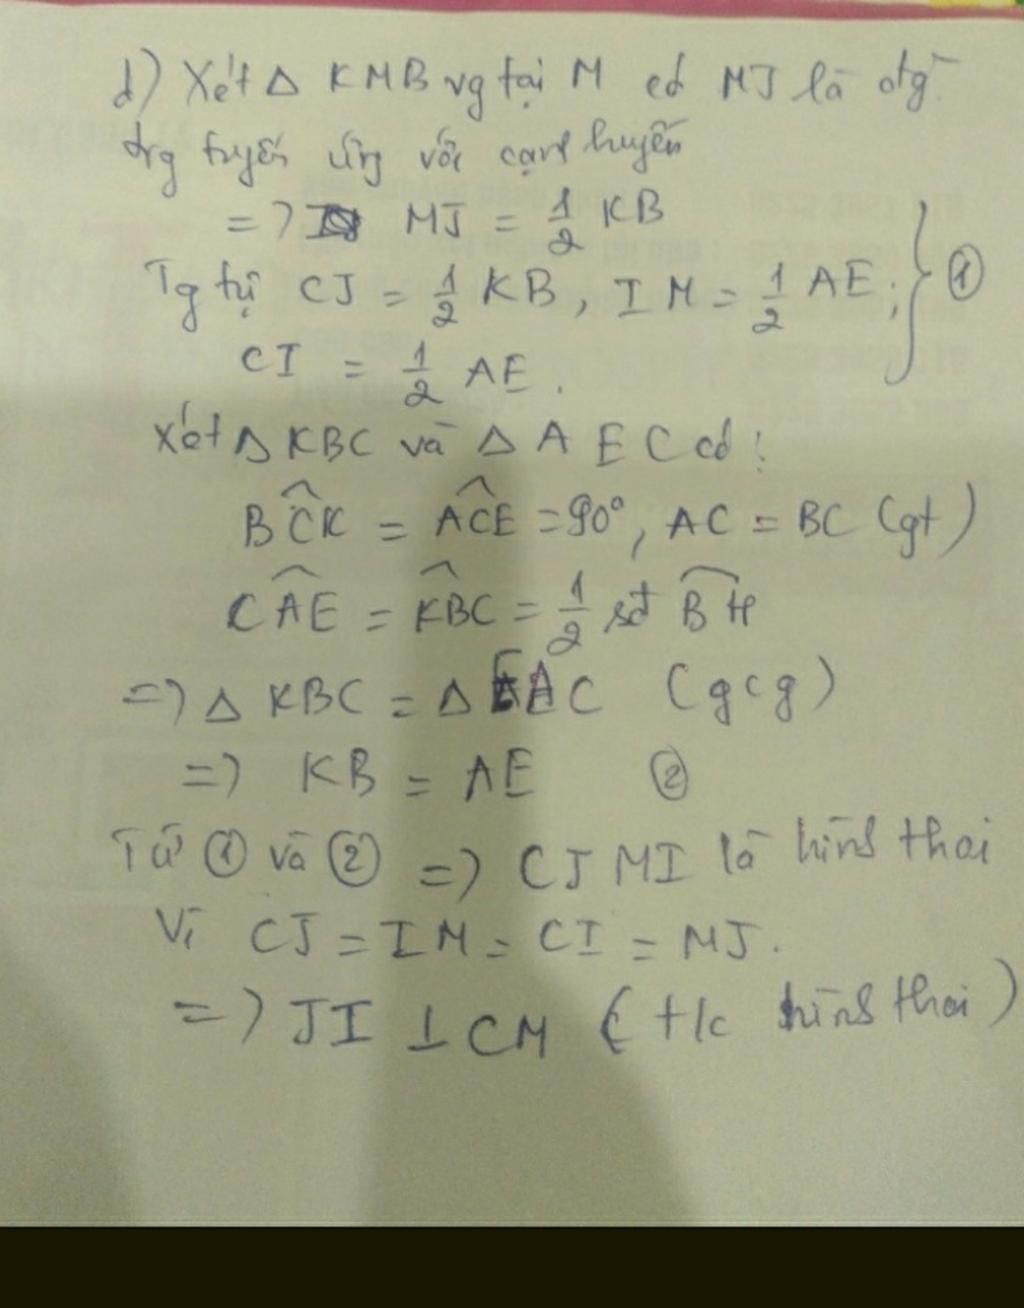 d) Xét Δ KMB vg tại M có MJ là đg
trg tuyến ứng với cạnh huyền
=> MJ = 1/2 KB
Tg tự CJ = 1/2 KB, IM = 1/2 AE; } ①
CI = 1/2 AE.
Xét Δ KBC và Δ AEC có:
BĈK = AĈE = 90°, AC = BC (gt)
CÂE = K̂BC = 1/2 sđ BH
=> Δ KBC = Δ EAC (gcg)
=> KB = AE ②
Từ ① và ② => CJMI là hình thoi
Vì CJ = IM = CI = MJ.
=> JI ⊥ CM (t/c hình thoi)